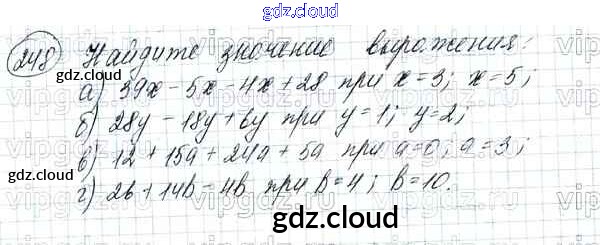 gdz.cloud
248 Найдите значение выражения:
gdz.cloud gdz.cloud
а) 39x - 5x - 4x + 28 при x = 3; x = 5;
б) 28y - 18y + 6y при y = 1; y = 2;
в) 12 + 15a + 24a + 5a при a = 0; a = 3;
gdz.cloud gdz.cloud
г) 2b + 14b - 4b при b = 4; b = 10.
gdz.cloud